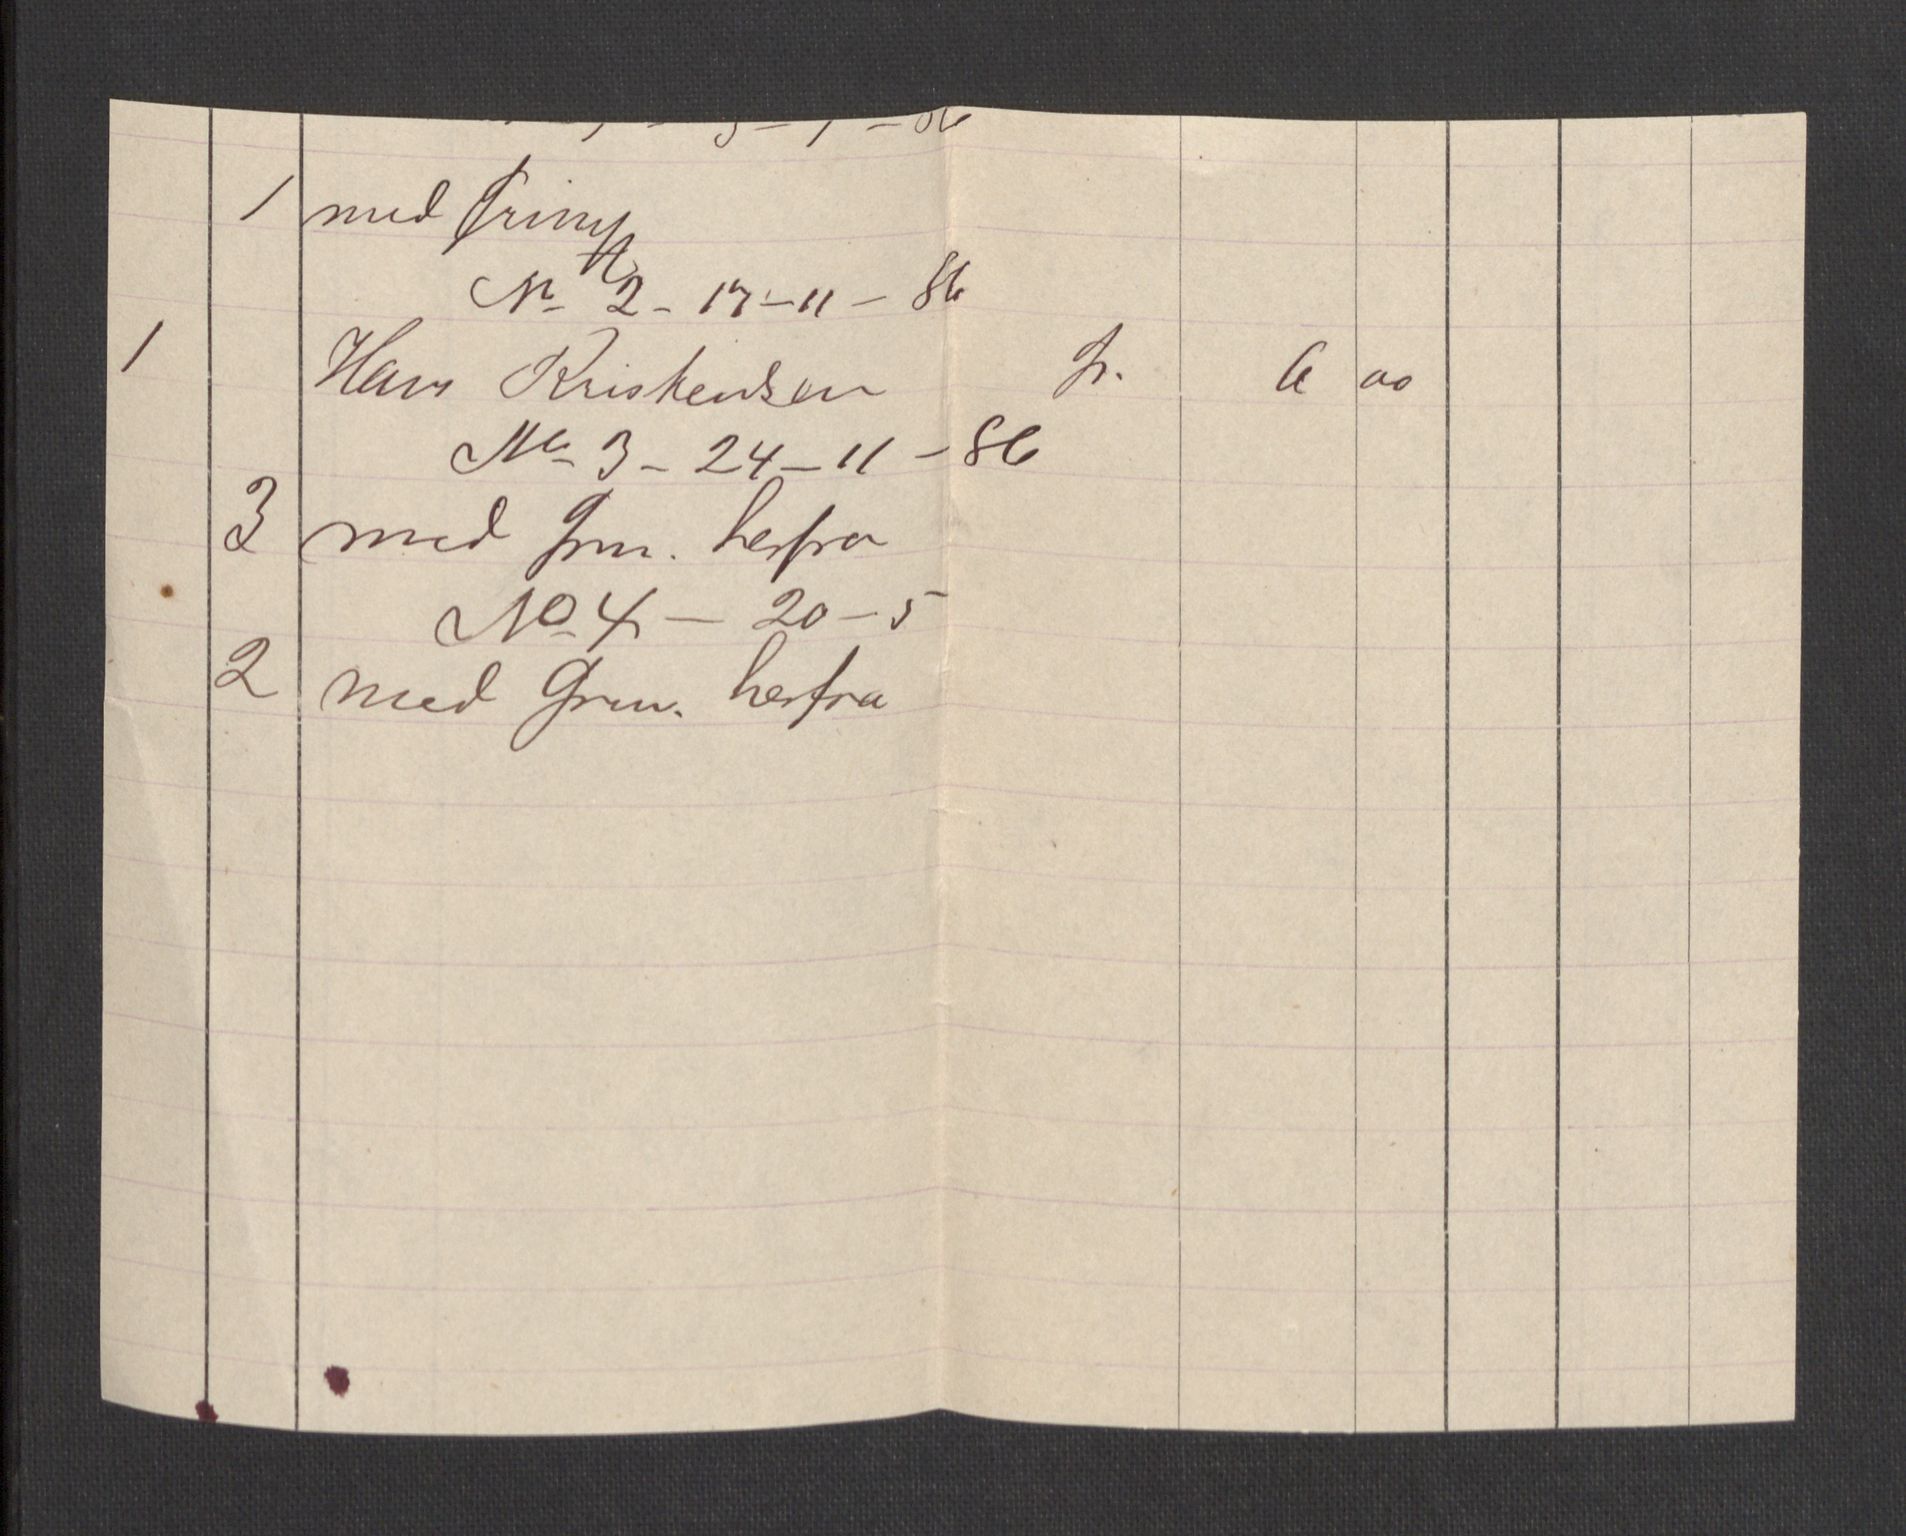 1 med
No 2 - 17 - 11 - 86
1 Hans Kristensen fr. 6 00
No 3 - 24 - 11 - 86
3 med Grm. herfra
No 4 - 20 - 5
2 med Grm. herfra